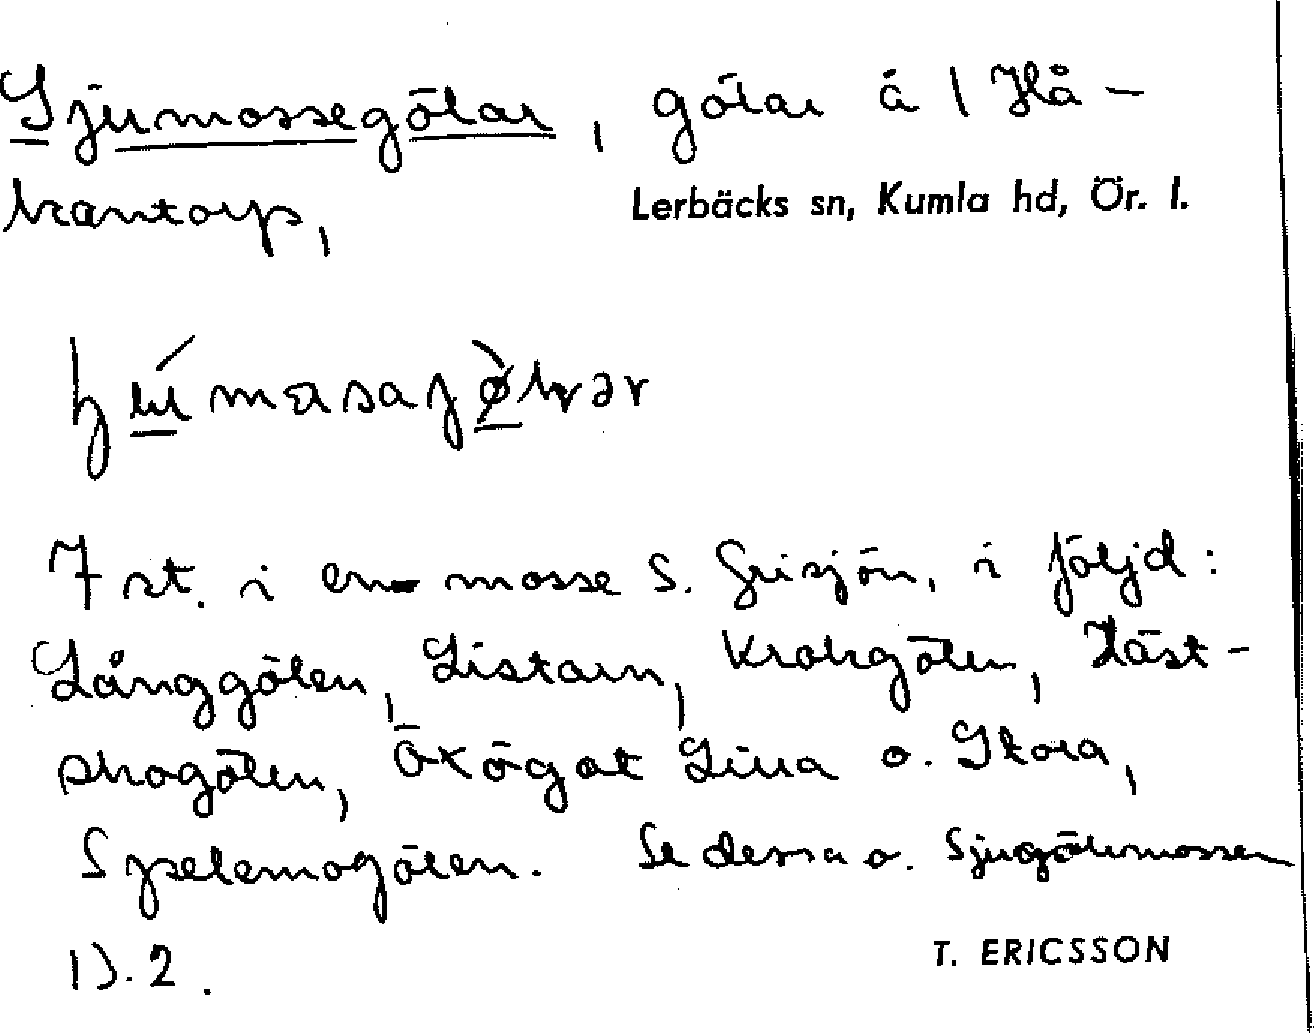 Sjumossegölar, gölar å 1 Hå-
kantorp,
Lerbäcks sn, Kumla hd, Ör. l.
7 st. i en mosse S. Grisjön, i följd:
Långgölen, Listarn, Krokgölen, Häst-
skogölen, Oxögat Lilla o. Stora,
Spelamogölen. Se dessa o. Sjugölamossen
1). 2.
T. ERICSSON